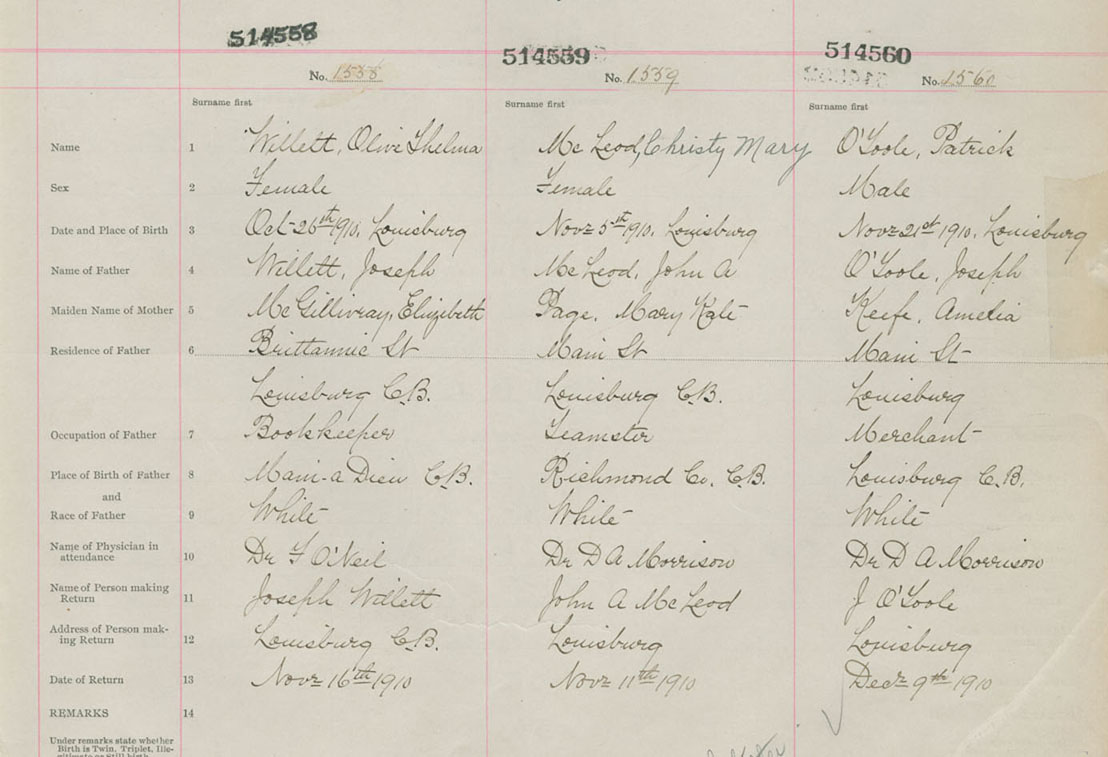 514558 514559 514560
No. 1558 No. 1559 No. 1560
Surname first Surname first Surname first
Name 1 Willett, Olive Thelma Mc Leod, Christy Mary O'Toole, Patrick
Sex 2 Female Female Male
Date and Place of Birth 3 Oct 26th 1910, Louisburg Nov 5th 1910, Louisburg Nov 21st 1910, Louisburg
Name of Father 4 Willett, Joseph Mc Leod, John A O'Toole, Joseph
Maiden Name of Mother 5 Mc Gillivray, Elizibeth Page, Mary Kate Keefe, Amelia
Residence of Father 6 Brittannic St Main St Main St
Louisburg C.B. Louisburg C.B. Louisburg
Occupation of Father 7 Bookkeeper Teamster Merchant
Place of Birth of Father 8 Main-a Dieu C.B. Richmond Co. C.B. Louisburg C.B.
and
Race of Father 9 White White White
Name of Physician in
attendance 10 Dr F O'Neil Dr D A Morrison Dr D A Morrison
Name of Person making
Return 11 Joseph Willett John A Mc Leod J O'Toole
Address of Person mak-
ing Return 12 Louisburg C.B. Louisburg Louisburg
Date of Return 13 Nov 16th 1910 Nov 11th 1910 Dec 9th 1910
REMARKS 14
Under remarks state whether
Birth is Twin, Triplet, Ille-
gitimate or Still birth